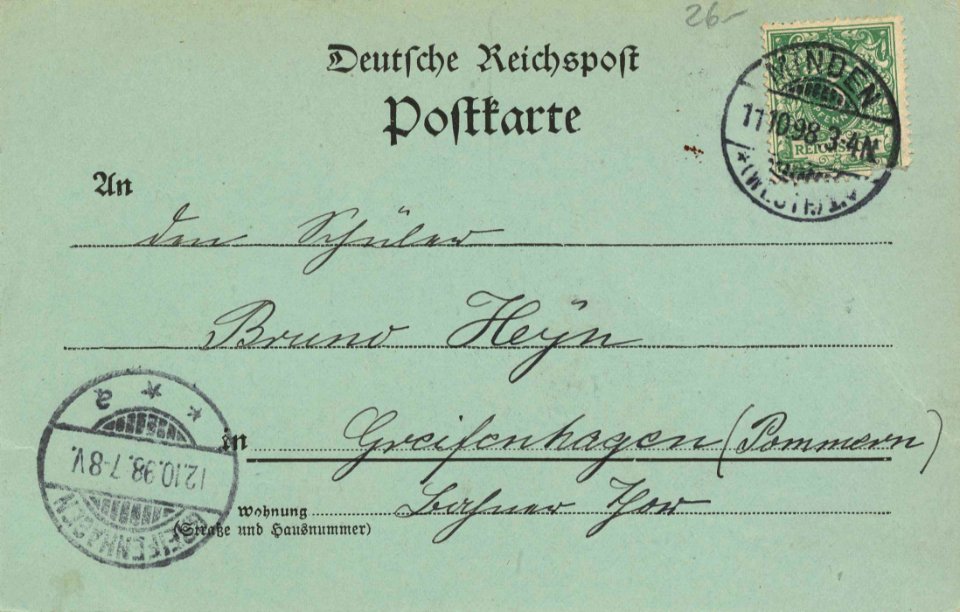 26-
Deutsche Reichspost
Postkarte
MINDEN
11.10.98.3-4N.
*(WESTF)1.*
REICHSPOST
An
den Schüler
Bruno Heyn
in Greifenhagen (Pommern)
Wohnung Bahner Thor
(Straße und Hausnummer)
* * a
12.10.98.7-8V.
GREIFENHAGEN